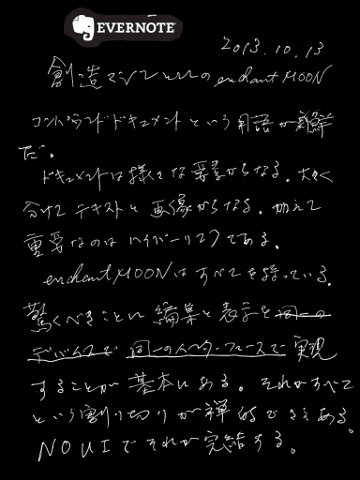 EVERNOTE
2013.10.13
創造マシンとしてのenchantMOON
コンパウンドドキュメントという用語が新鮮
だ。
ドキュメントは様々な要素からなる。大きく
分けてテキストと画像からなる。加えて
重要なのはハイパーリンクである。
enchantMOONはすべてを持っている。
驚くべきことに編集と表示を同一の
デバイスで同一のインターフェースで実現
することが基本にある。それがすべて
という割り切りが禅的でさえある。
NO UIでそれが完結する。